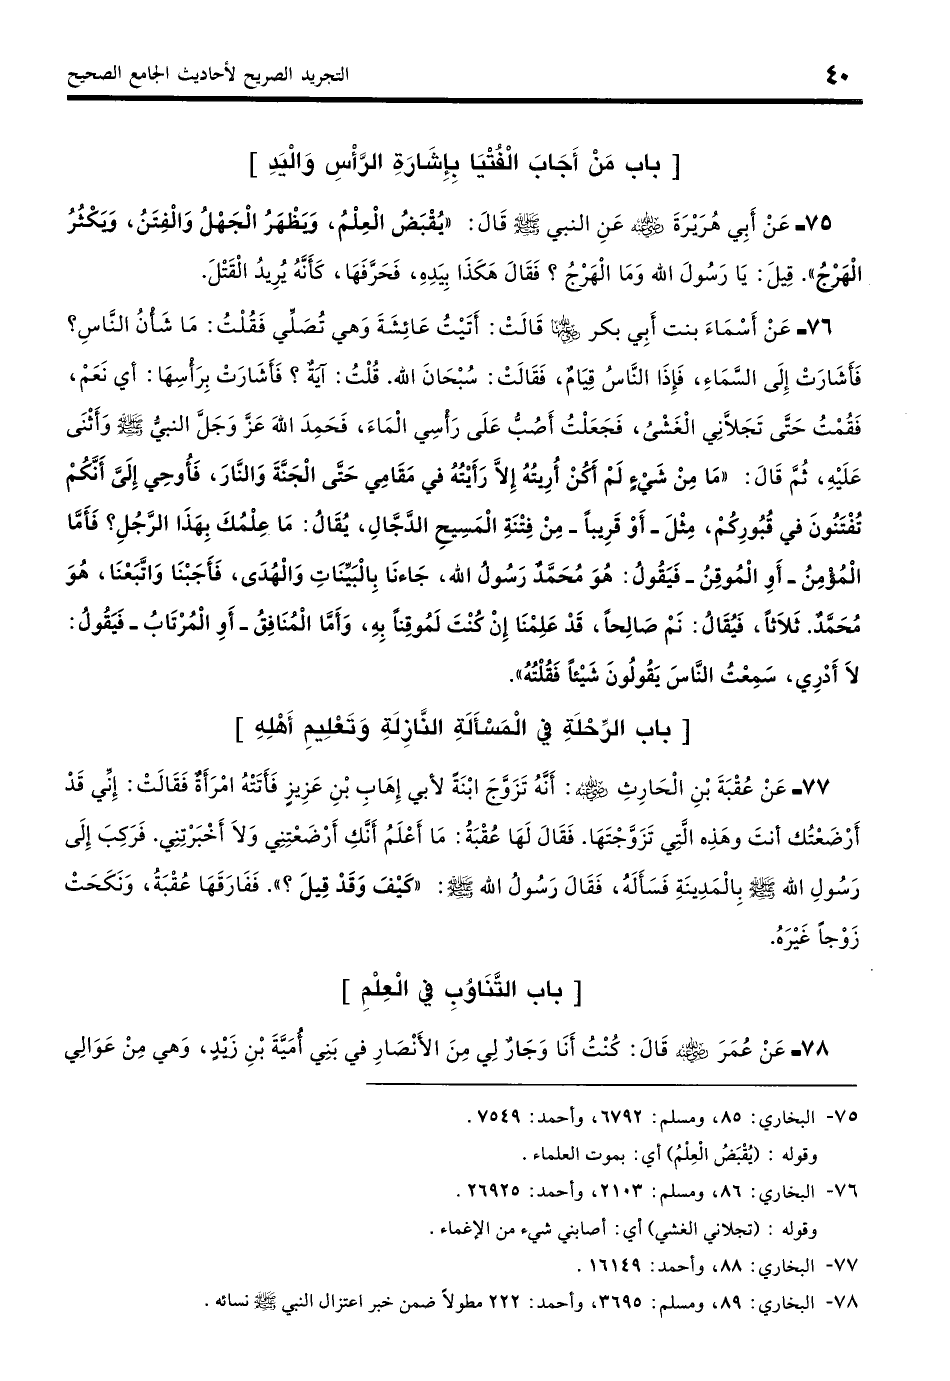 ٤٠ التجريد الصريح لأحاديث الجامع الصحيح
[ باب مَنْ أَجَابَ الْفُتْيَا بِإِشَارَةِ الرَّأْسِ وَالْيَدِ ]
٧٥ـ عَنْ أَبِي هُرَيْرَةَ رضي الله عنه عَنِ النبي ﷺ قَالَ: «يُقْبَضُ الْعِلْمُ، وَيَظْهَرُ الْجَهْلُ وَالْفِتَنُ، وَيَكْثُرُ
الْهَرْجُ». قِيلَ: يَا رَسُولَ الله وَمَا الْهَرْجُ ؟ فَقَالَ هَكَذَا بِيَدِهِ، فَحَرَّفَهَا، كَأَنَّهُ يُرِيدُ الْقَتْلَ.
٧٦ـ عَنْ أَسْمَاءَ بنت أَبِي بكر رضي الله عنها قَالَتْ: أَتَيْتُ عَائِشَةَ وَهي تُصَلِّي فَقُلْتُ: مَا شَأْنُ النَّاسِ؟
فَأَشَارَتْ إِلَى السَّمَاءِ، فَإِذَا النَّاسُ قِيَامٌ، فَقَالَتْ: سُبْحَانَ الله. قُلْتُ: آيَةٌ ؟ فَأَشَارَتْ بِرَأْسِهَا: أي نَعَمْ،
فَقُمْتُ حَتَّى تَجَلاَّنِي الْغَشْيُ، فَجَعَلْتُ أَصُبُّ عَلَى رَأْسِي الْمَاءَ، فَحَمِدَ اللهَ عَزَّ وَجَلَّ النبيُّ ﷺ وَأَثْنَى
عَلَيْهِ، ثُمَّ قَالَ: «مَا مِنْ شَيْءٍ لَمْ أَكُنْ أُرِيتُهُ إِلاَّ رَأَيْتُهُ في مَقَامِي حَتَّى الْجَنَّةَ وَالنَّارَ، فَأُوحِي إِلَىَّ أَنَّكُمْ
تُفْتَنُونَ في قُبُورِكُمْ، مِثْلَ ـ أَوْ قَرِيباً ـ مِنْ فِتْنَةِ الْمَسِيحِ الدَّجَّالِ، يُقَالُ: مَا عِلْمُكَ بِهَذَا الرَّجُلِ؟ فَأَمَّا
الْمُؤْمِنُ ـ أَوِ الْمُوقِنُ ـ فَيَقُولُ: هُوَ مُحَمَّدٌ رَسُولُ الله، جَاءنَا بِالْبَيِّنَاتِ وَالْهُدَى، فَأَجَبْنَا وَاتَّبَعْنَا، هُوَ
مُحَمَّدٌ. ثَلاَثاً، فَيُقَالُ: نَمْ صَالِحاً، قَدْ عَلِمْنَا إِنْ كُنْتَ لَمُوقِناً بِهِ، وَأَمَّا الْمُنَافِقُ ـ أَوِ الْمُرْتَابُ ـ فَيَقُولُ:
لاَ أَدْرِي، سَمِعْتُ النَّاسَ يَقُولُونَ شَيْئاً فَقُلْتُهُ».
[ باب الرِّحْلَةِ فِي الْمَسْأَلَةِ النَّازِلَةِ وَتَعْلِيمِ أَهْلِهِ ]
٧٧ـ عَنْ عُقْبَةَ بْنِ الْحَارِثِ رضي الله عنه: أَنَّهُ تَزَوَّجَ ابْنَةً لأَبي إِهَابِ بْنِ عَزِيزٍ فَأَتَتْهُ امْرَأَةٌ فَقَالَتْ: إِنِّي قَدْ
أَرْضَعْتُك أنتَ وهَذِه الَّتِي تَزَوَّجْتَهَا. فَقَالَ لَهَا عُقْبَةُ: مَا أَعْلَمُ أَنَّكِ أَرْضَعْتِنِي وَلاَ أَخْبَرْتِنِي. فَرَكِبَ إِلَى
رَسُولِ الله ﷺ بِالْمَدِينَةِ فَسَأَلَهُ، فَقَالَ رَسُولُ الله ﷺ: «كَيْفَ وَقَدْ قِيلَ ؟». فَفَارَقَهَا عُقْبَةُ، وَنَكَحَتْ
زَوْجاً غَيْرَهُ.
[ باب التَّنَاوُبِ فِي الْعِلْمِ ]
٧٨ـ عَنْ عُمَرَ رضي الله عنه قَالَ: كُنْتُ أَنَا وَجَارٌ لِي مِنَ الأَنْصَارِ في بَنِي أُمَيَّةَ بْنِ زَيْدٍ، وَهي مِنْ عَوَالِي
٧٥- البخاري: ٨٥، ومسلم: ٦٧٩٢، وأحمد: ٧٥٤٩ .
وقوله : (يُقْبَضُ الْعِلْمُ) أي: بموت العلماء .
٧٦- البخاري: ٨٦، ومسلم: ٢١٠٣، وأحمد: ٢٦٩٢٥ .
وقوله : (تجلاني الغشي) أي: أصابني شيء من الإغماء .
٧٧- البخاري: ٨٨، وأحمد: ١٦١٤٩ .
٧٨- البخاري: ٨٩، ومسلم: ٣٦٩٥، وأحمد: ٢٢٢ مطولاً ضمن خبر اعتزال النبي ﷺ نسائه .